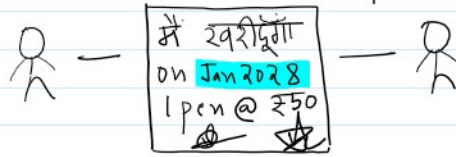 मैं खरीदूंगा
on Jan 2028
1 pen @ ₹50